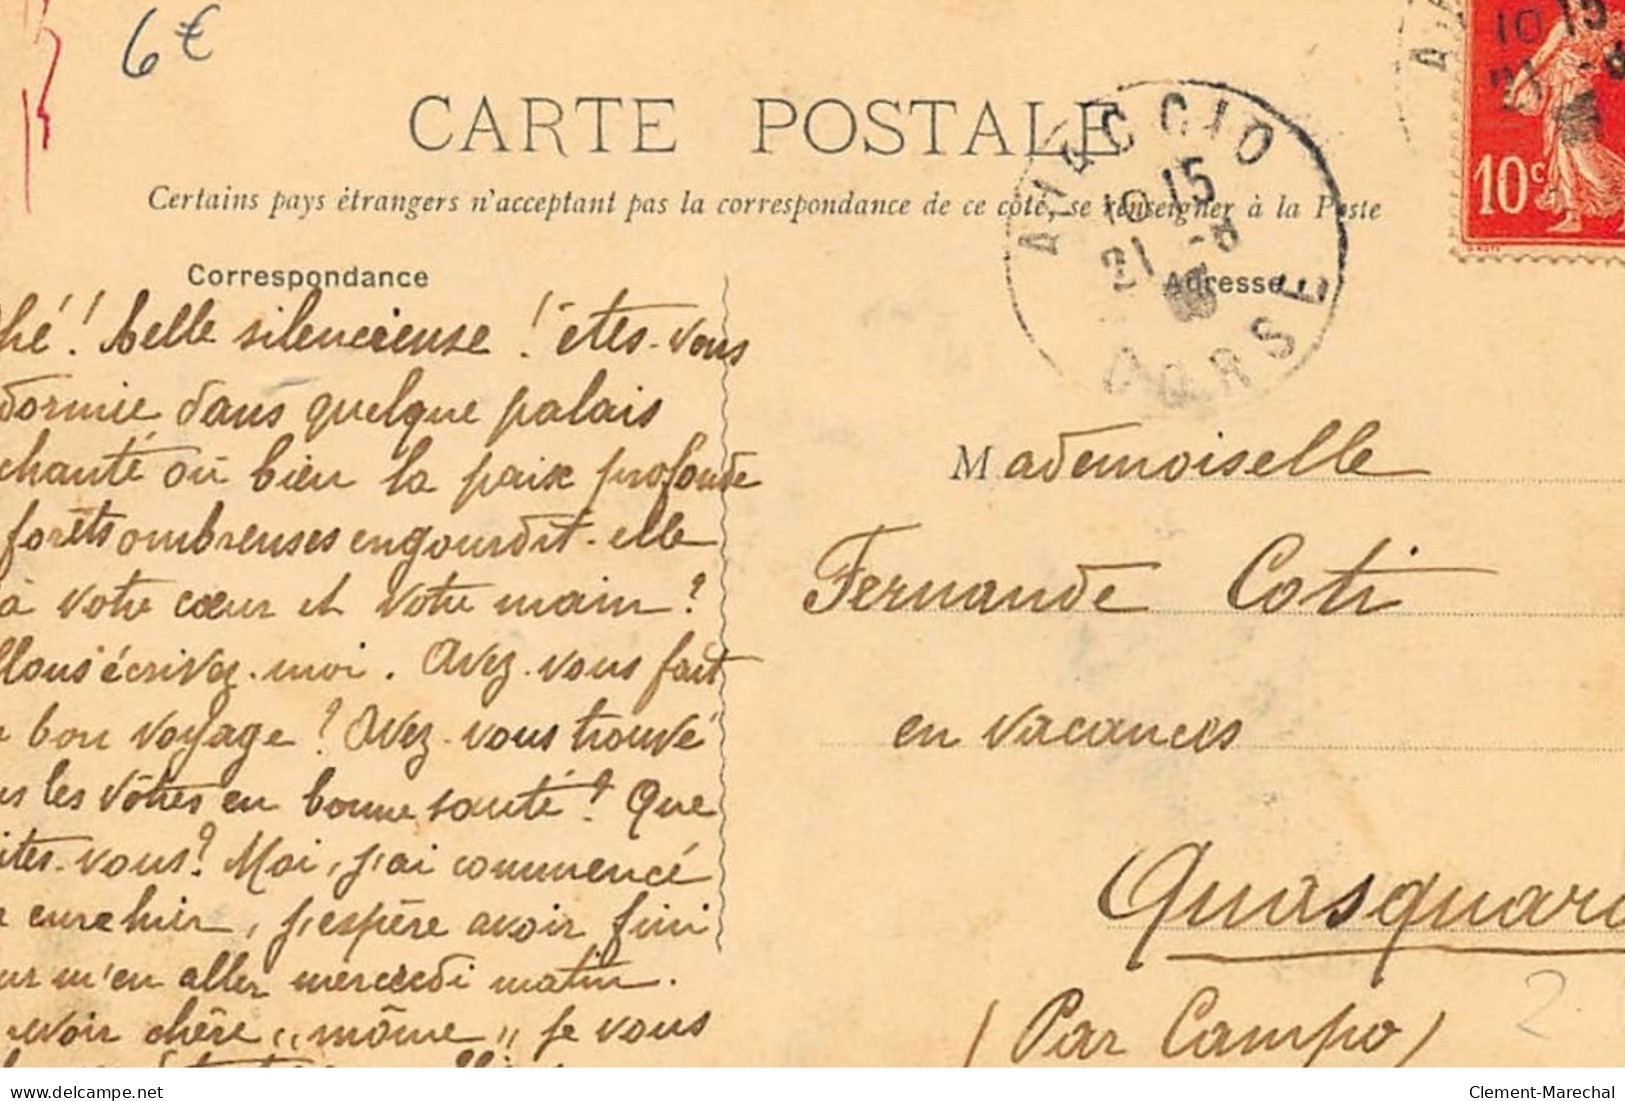 6€
CARTE POSTALE
Certains pays étrangers n'acceptent pas la correspondance de ce côté, se renseigner à la Poste
Correspondance
Adresse
AJACCIO
10 15
21 -8
CORSE
10 15
21 -8
10c
hé! belle silencieuse! êtes-vous
dormie dans quelque palais
chanté où bien la paix profonde
forêts ombreuses engourdit-elle
à votre cœur et votre main?
llons écrivez-moi. Avez-vous fait
bon voyage? Avez-vous trouvé
us les vôtres en bonne santé? Que
ites-vous? Moi, j'ai commencé
cure hier, j'espère avoir fini
ur m'en aller mercredi matin.
revoir chère "môme" je vous
Mademoiselle
Fernande Coti
en vacances
Quasquara
(Par Campo)
2
delcampe.net
Clement-Marechal